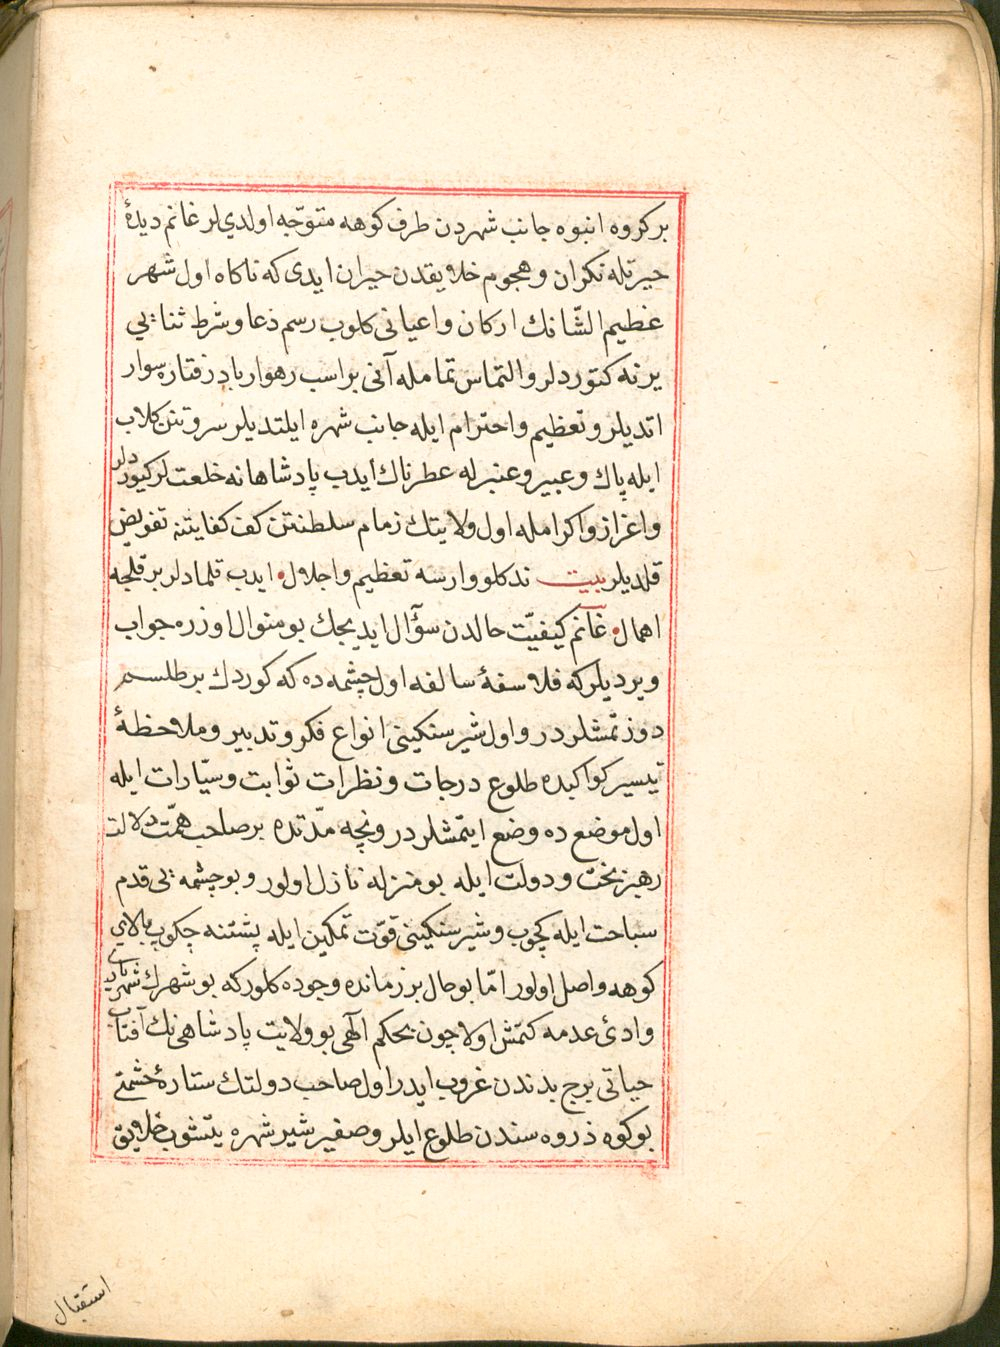 بر كروه انبوه جانب شهردن طرف كوهه متوجّه اولدي لر غانم ديدۀ
حيرتله نكران و هجوم خلايقدن حيران ايدى كه ناكاه اول شهر
عظيم الشّانك اركان و اعيانى كلوب رسم دعا و شرط ثنايى
يرنه كتوردلر و التماس تمامله آنى بر اسب رهوار باد رفتاره سوار
اتديلر و تعظيم و احترام ايله جانب شهره ايلتديلر سر و تنن كلاب
ايله پاك و عبير و عنبرله عطرناك ايدب پادشاهانه خلعت لر كيوردلر
و اغزاز و اكرامله اول ولايتك زمام سلطنتن كف كفايتنه تفويض
قلديلر بيت ندكلو وارسه تعظيم و اجلال • ايدب قلمادلر بر قلجه
اهمال • غانم كيفيّت حالدن سؤال ايديجك بو منوال اوزره جواب
ويرديلر كه فلاسفۀ سالفه اول چشمه ده كه كوردك بر طلسم
دوزتمشلردر و اول شير سنكينى انواع فكر و تدبير و ملاحظۀ
تيسير كواكبده طلوع درجات و نظرات ثوابت و سيّارات ايله
اول موضع ده وضع ايتمشلردر و نچه مدّتده بر صاحب همّت دلالت
رهبر بخت و دولت ايله بو منزله نازل اولور و بو چشمه يى قدم
سباحت ايله كچوب و شير سنكينى قوّت تمكين ايله پشتنه چكوب بالاى
كوهه واصل اولور امّا بو حال بر زمانده وجوده كلور كه بو شهرك شهريارى
وادئ عدمه كتمش اولا چون بحكم الهى بو ولايت پادشاهى نك آفتاب
حياتى برج بدندن غروب ايدر اول صاحب دولتك ستارۀ حشمتى
بو كوه ذروه سندن طلوع ايلر و صفير شير شهره يتشوب خلايق
استقبال